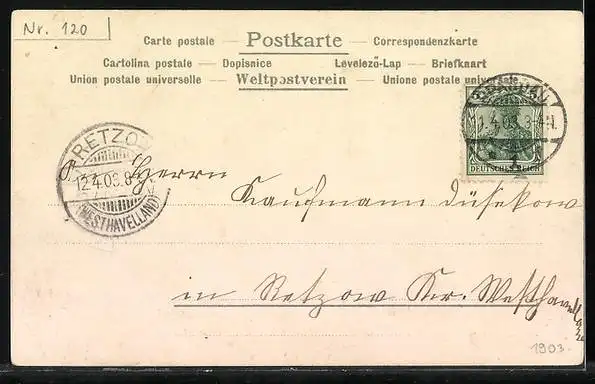 Nr. 120
Carte postale — Postkarte — Correspondenzkarte
Cartolina postale — Dopisnice Levelező-Lap — Briefkaart
Union postale universelle — Weltpostverein — Unione postale universale
SPANDAU
11.4.03. 3-4N.
1
DEUTSCHES REICH
RETZOW
12.4.03.
(WESTHAVELLAND)
Herrn
Kaufmann Düsekow
in Retzow Kr. Westhavelland
1903